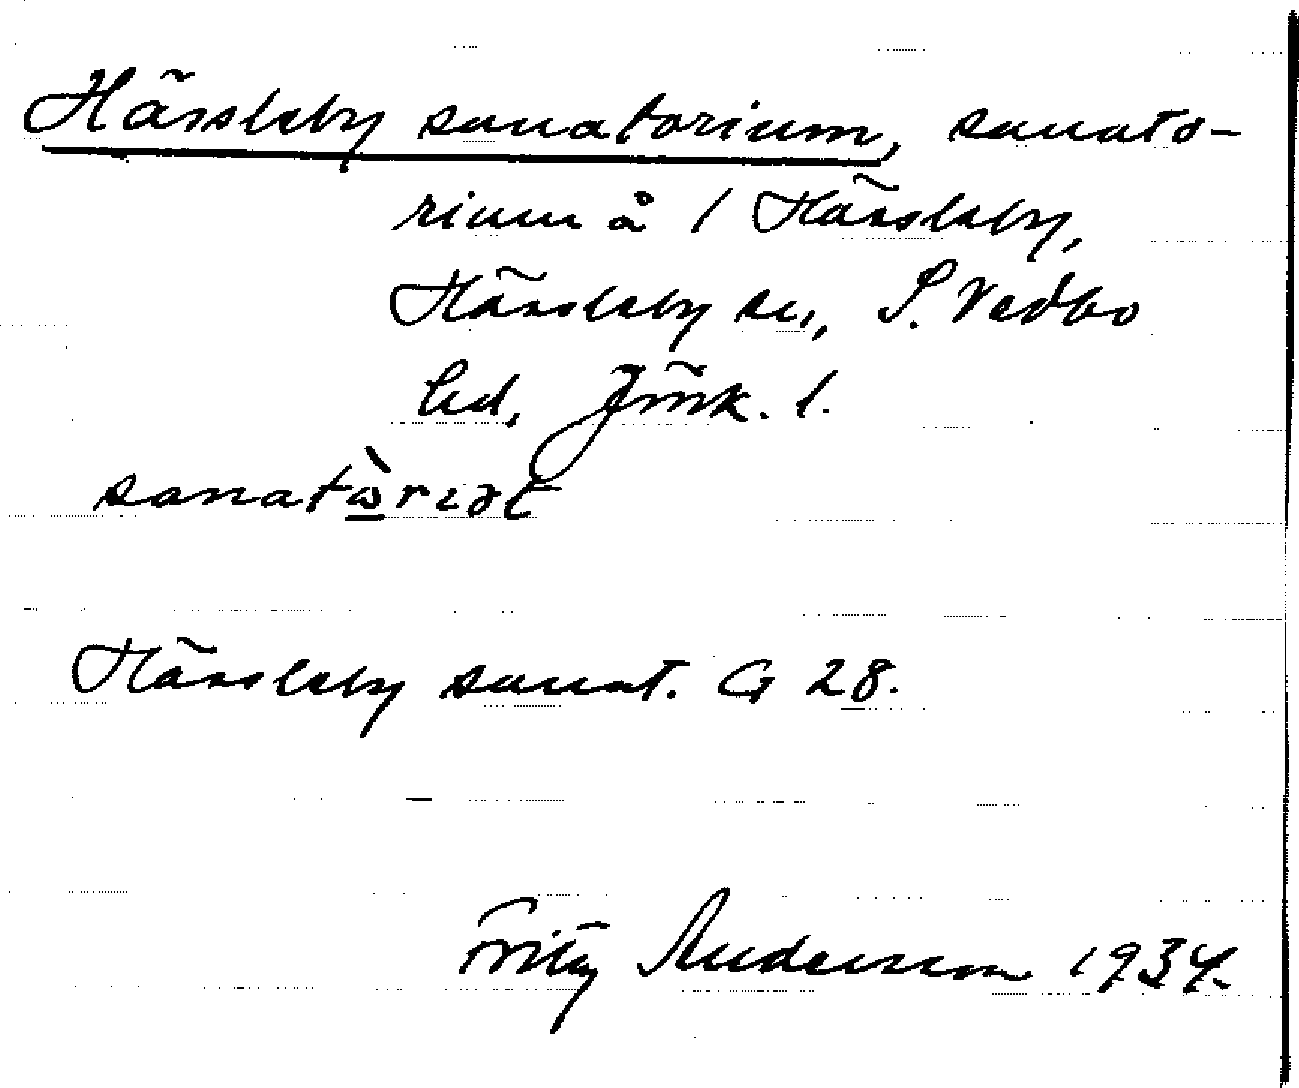 Hässleby sanatorium, sanato-
rium å 1 Hässleby,
Hässleby sn, S. Vedbo
hd, Jönk. l.
sanatὼriət
Hässleby sanat. G 28.
Fritz Andersson 1934.